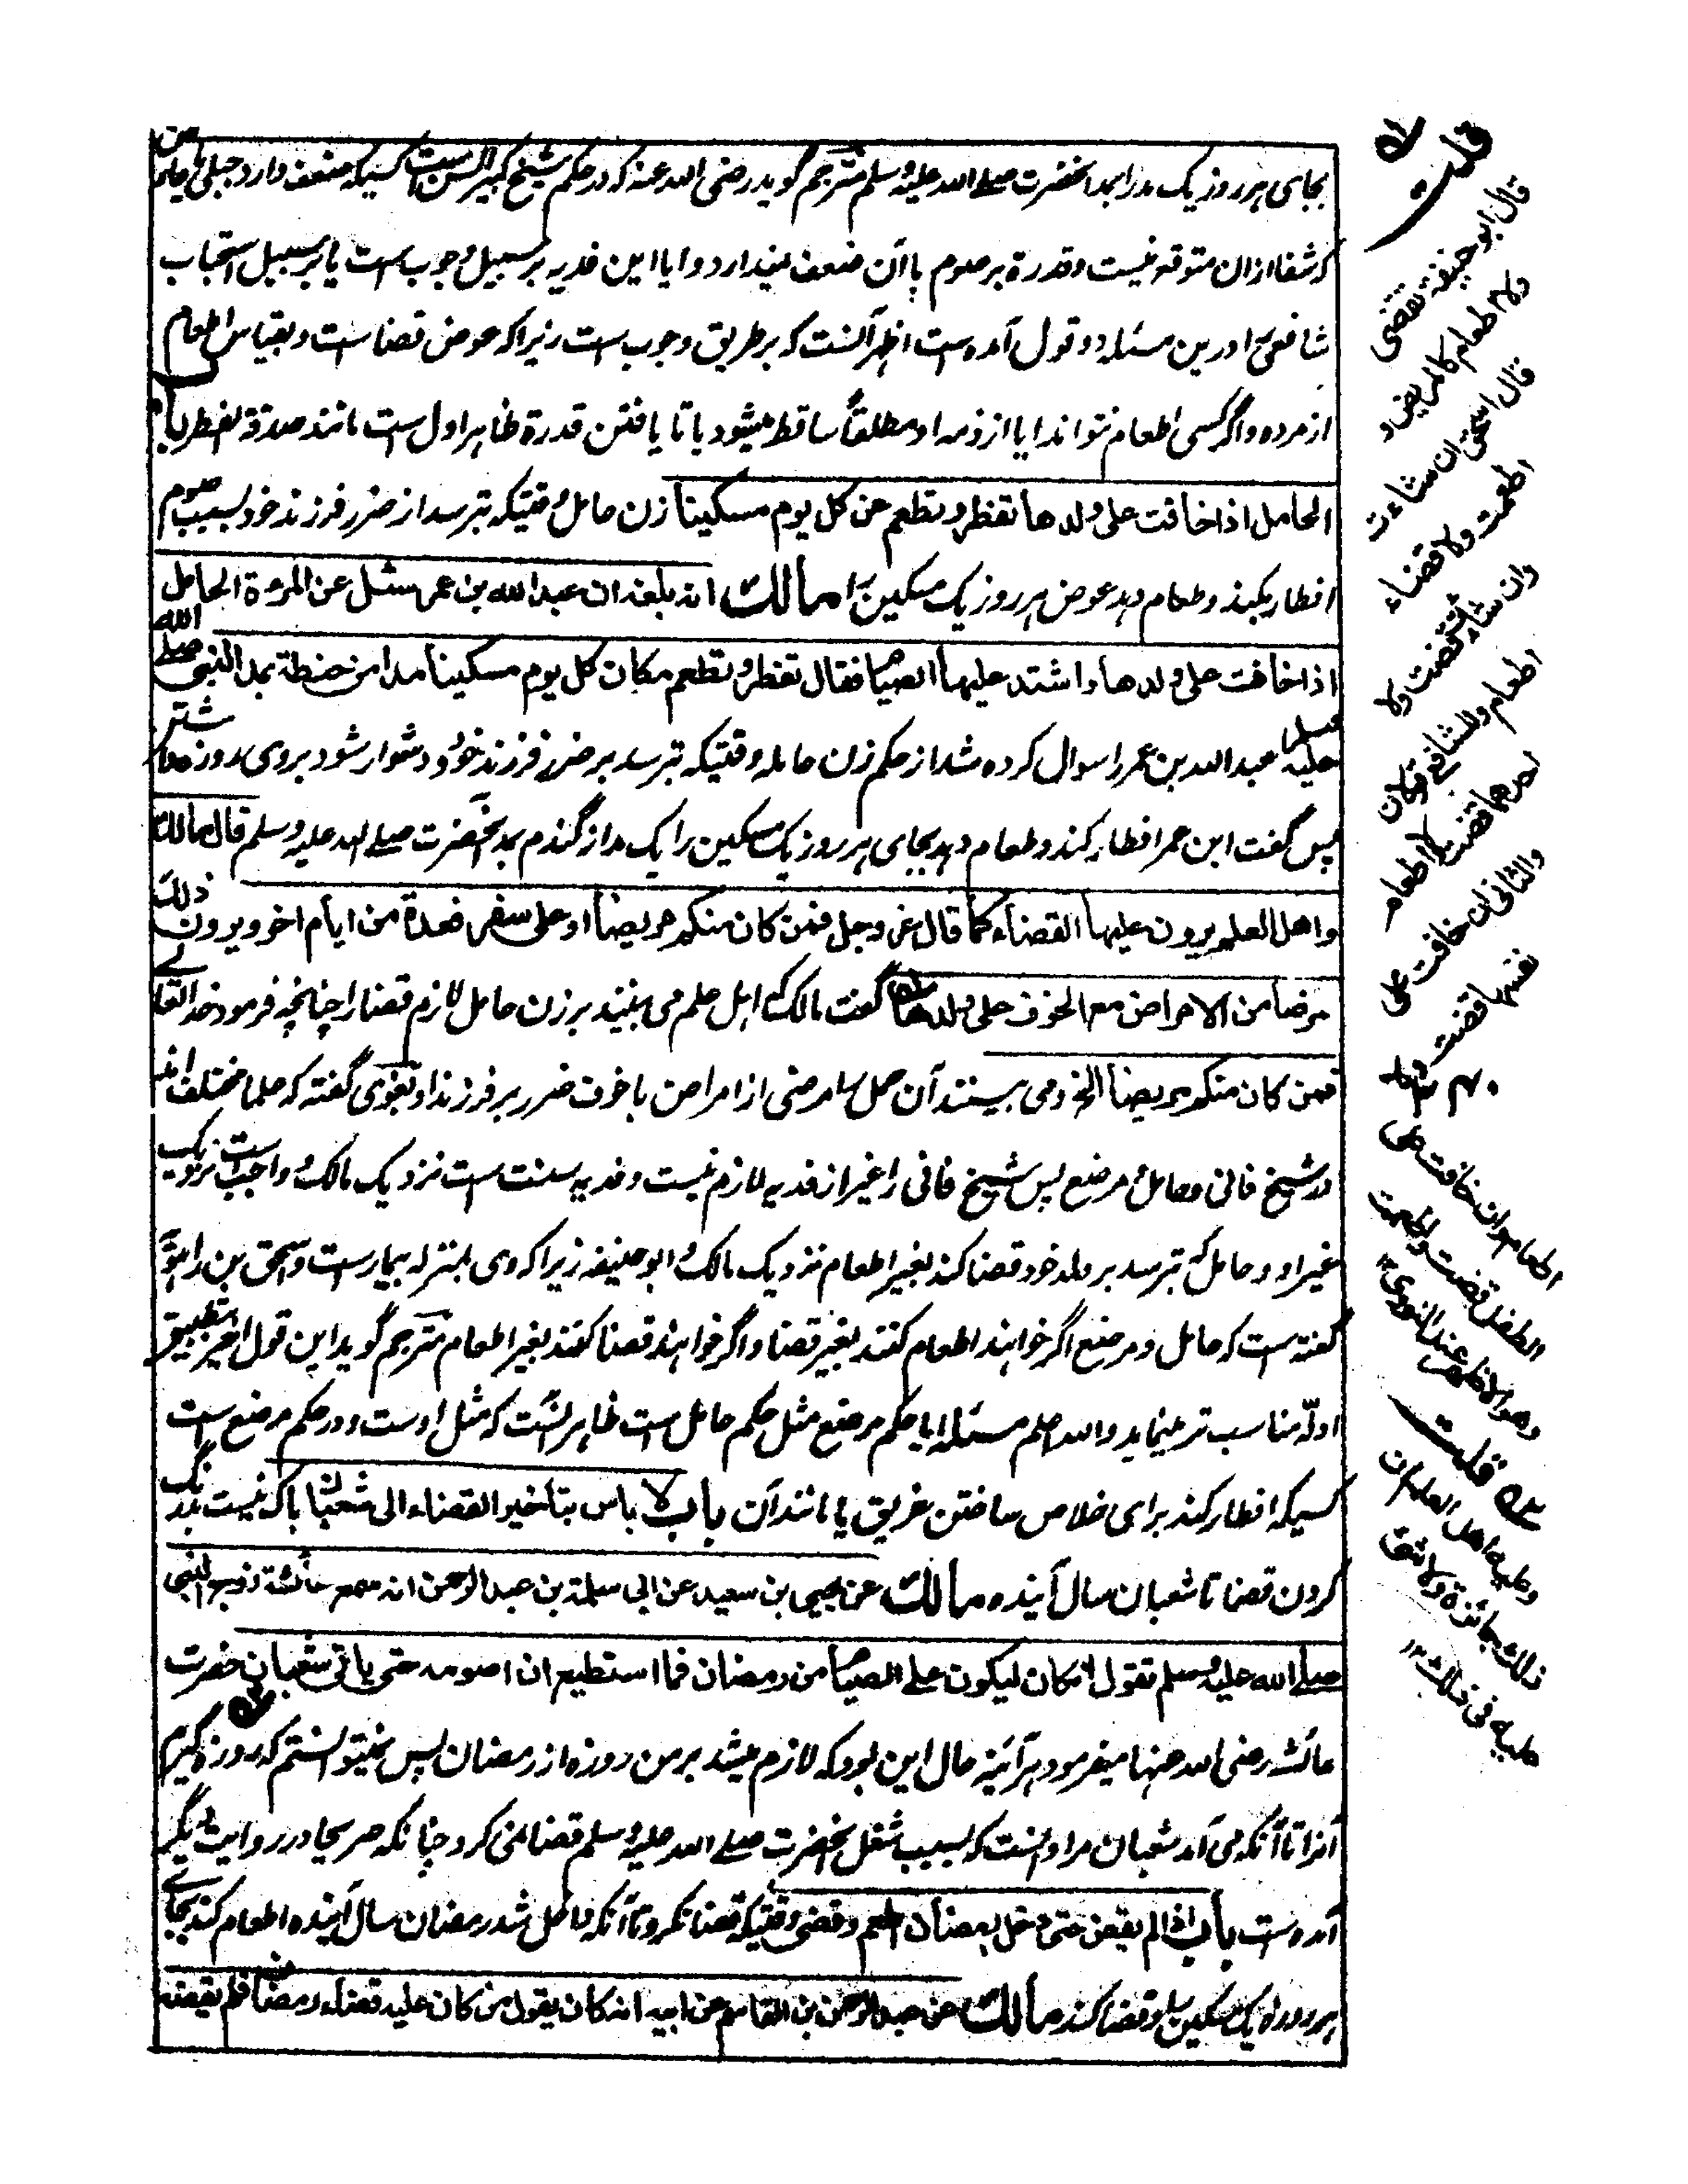 بجای هر روز یک مد را بمد آنحضرت صلے الله علیه وسلم مترجم گوید رضی الله عنه که در حکم شیخ کبیر السن است کسیکه ضعف دارد جبلی یا
که شفا ازان متوقع نیست و قدرة بر صوم با آن ضعف نمیدارد و ایا این فدیه بر سبیل وجوب ست یا بر سبیل استحباب
شافعی را درین مسئله دو قول آمده ست اظهر آنست که بر طریق وجوب ست زیراکه عوض قضا ست و بقیاس اطعام
از مرده و اگر کسی اطعام نتواند ایا از ذمه او مطلقاً ساقط میشود یا تا یافتن قدرة ظاهر اول ست مانند صدقة الفطر باب
الحامل اذا خافت علی ولدها تفطر وتطعم عن کل یوم مسکینا زن حامل وقتیکه بترسد از ضرر فرزند خود بسبب صوم
افطار بکند و طعام دهد عوض هر روز یک مسکین را مالك انه بلغه ان عبد الله بن عمر سئل عن المرءة الحامل
اذا خافت علی ولدها واشتد علیها الصیام فقال تفطر وتطعم مکان کل یوم مسکینا مدا من حنطة بمد النبی صلے الله
علیه وسلم عبد الله بن عمر را سوال کرده شد از حکم زن حامله وقتیکه بترسد بر ضرر فرزند خود و دشوار شود بر وی روزه داشتن
پس گفت ابن عمر افطار کند و طعام دهد بجای هر روز یک مسکین را یک مد از گندم بمد آنحضرت صلے الله علیه وسلم قال مالك
واهل العلم یرون علیها القضاء کما قال عز وجل فمن کان منکم مریضا او علی سفر فعدة من ایام اخر ویرون ذلك
مرضا من الامراض مع الخوف علی ولدها گفت مالک که اهل علم می بینند بر زن حامل لازم قضا را چنانچه فرمود خدا تعالے
فمن کان منکم مریضا الخ و می بینند آن حمل را مرضی از امراض با خوف ضرر بر فرزند او بغوی گفته که علما مختلف اند
در شیخ فانی و حامل و مرضع پس شیخ فانی را غیر از فدیه لازم نیست و فدیه سنت ست نزدیک مالک و واجب ست نزدیک
غیر او و حامل که بترسد بر ولد خود قضا کند بغیر اطعام نزدیک مالک و ابو حنیفه زیراکه وی بمنزله بیمار ست و اسحق بن راهویه
گفته ست که حامل و مرضع اگر خواهند اطعام کنند بغیر قضا و اگر خواهند قضا کنند بغیر اطعام مترجم گوید این قول اخیر بتطبیق
ادله مناسب تر مینماید والله اعلم مسئله ایا حکم مرضع مثل حکم حامل ست ظاهر آنست که مثل اوست و در حکم مرضع ست
کسیکه افطار کند برای خلاص ساختن غریق یا مانند آن باب لا باس بتاخیر القضاء الی شعبان باک نیست بدرنگ
کردن قضا تا شعبان سال آینده مالك عن یحیی بن سعید عن ابی سلمة بن عبد الرحمن انه سمع عائشة زوج النبی
صلے الله علیه وسلم تقول ان کان لیکون علے الصیام من رمضان فما استطیع ان اصومه حتی یاتی شعبان حضرت
عائشه رضی الله عنها میفرمود هر آئینه حال این بود که لازم میشد بر من روزه از رمضان پس نمیتوانستم که روزه گیرم
آنرا تا آنکه می آمد شعبان مراد آنست که بسبب شغل آنحضرت صلے الله علیه وسلم قضا نمی کرد چنانکه صریحا در روایت دیگر
آمده ست باب اذا لم یقض حتی دخل رمضان اطعم وقضی وقتیکه قضا نکرد تا آنکه داخل شد رمضان سال آینده اطعام کند بجائے
هر روز یک مسکین را و قضا کند مالك عن عبد الرحمن بن القاسم عن ابیه انه کان یقول من کان علیه قضاء رمضان فلم یقضه
قلت
قال ابو حنیفة تقضی
ولا اطعام کالمریض و
قال اسحق ان شاءت
اطعمت ولا قضاء
وان شاءت قضت ولا
اطعام وللشافعی قولان
احدهما قضت بلا اطعام
والثانی ان خافت علی
نفسها قضت بلا
اطعام وان خافت علی
الطفل قضت واطعمت
وهو الاظهر عند النووی
قلت
وعلیه اهل العلم ان
ذلك جائزة ولا شئ
علیه فی ذلك ۱۲